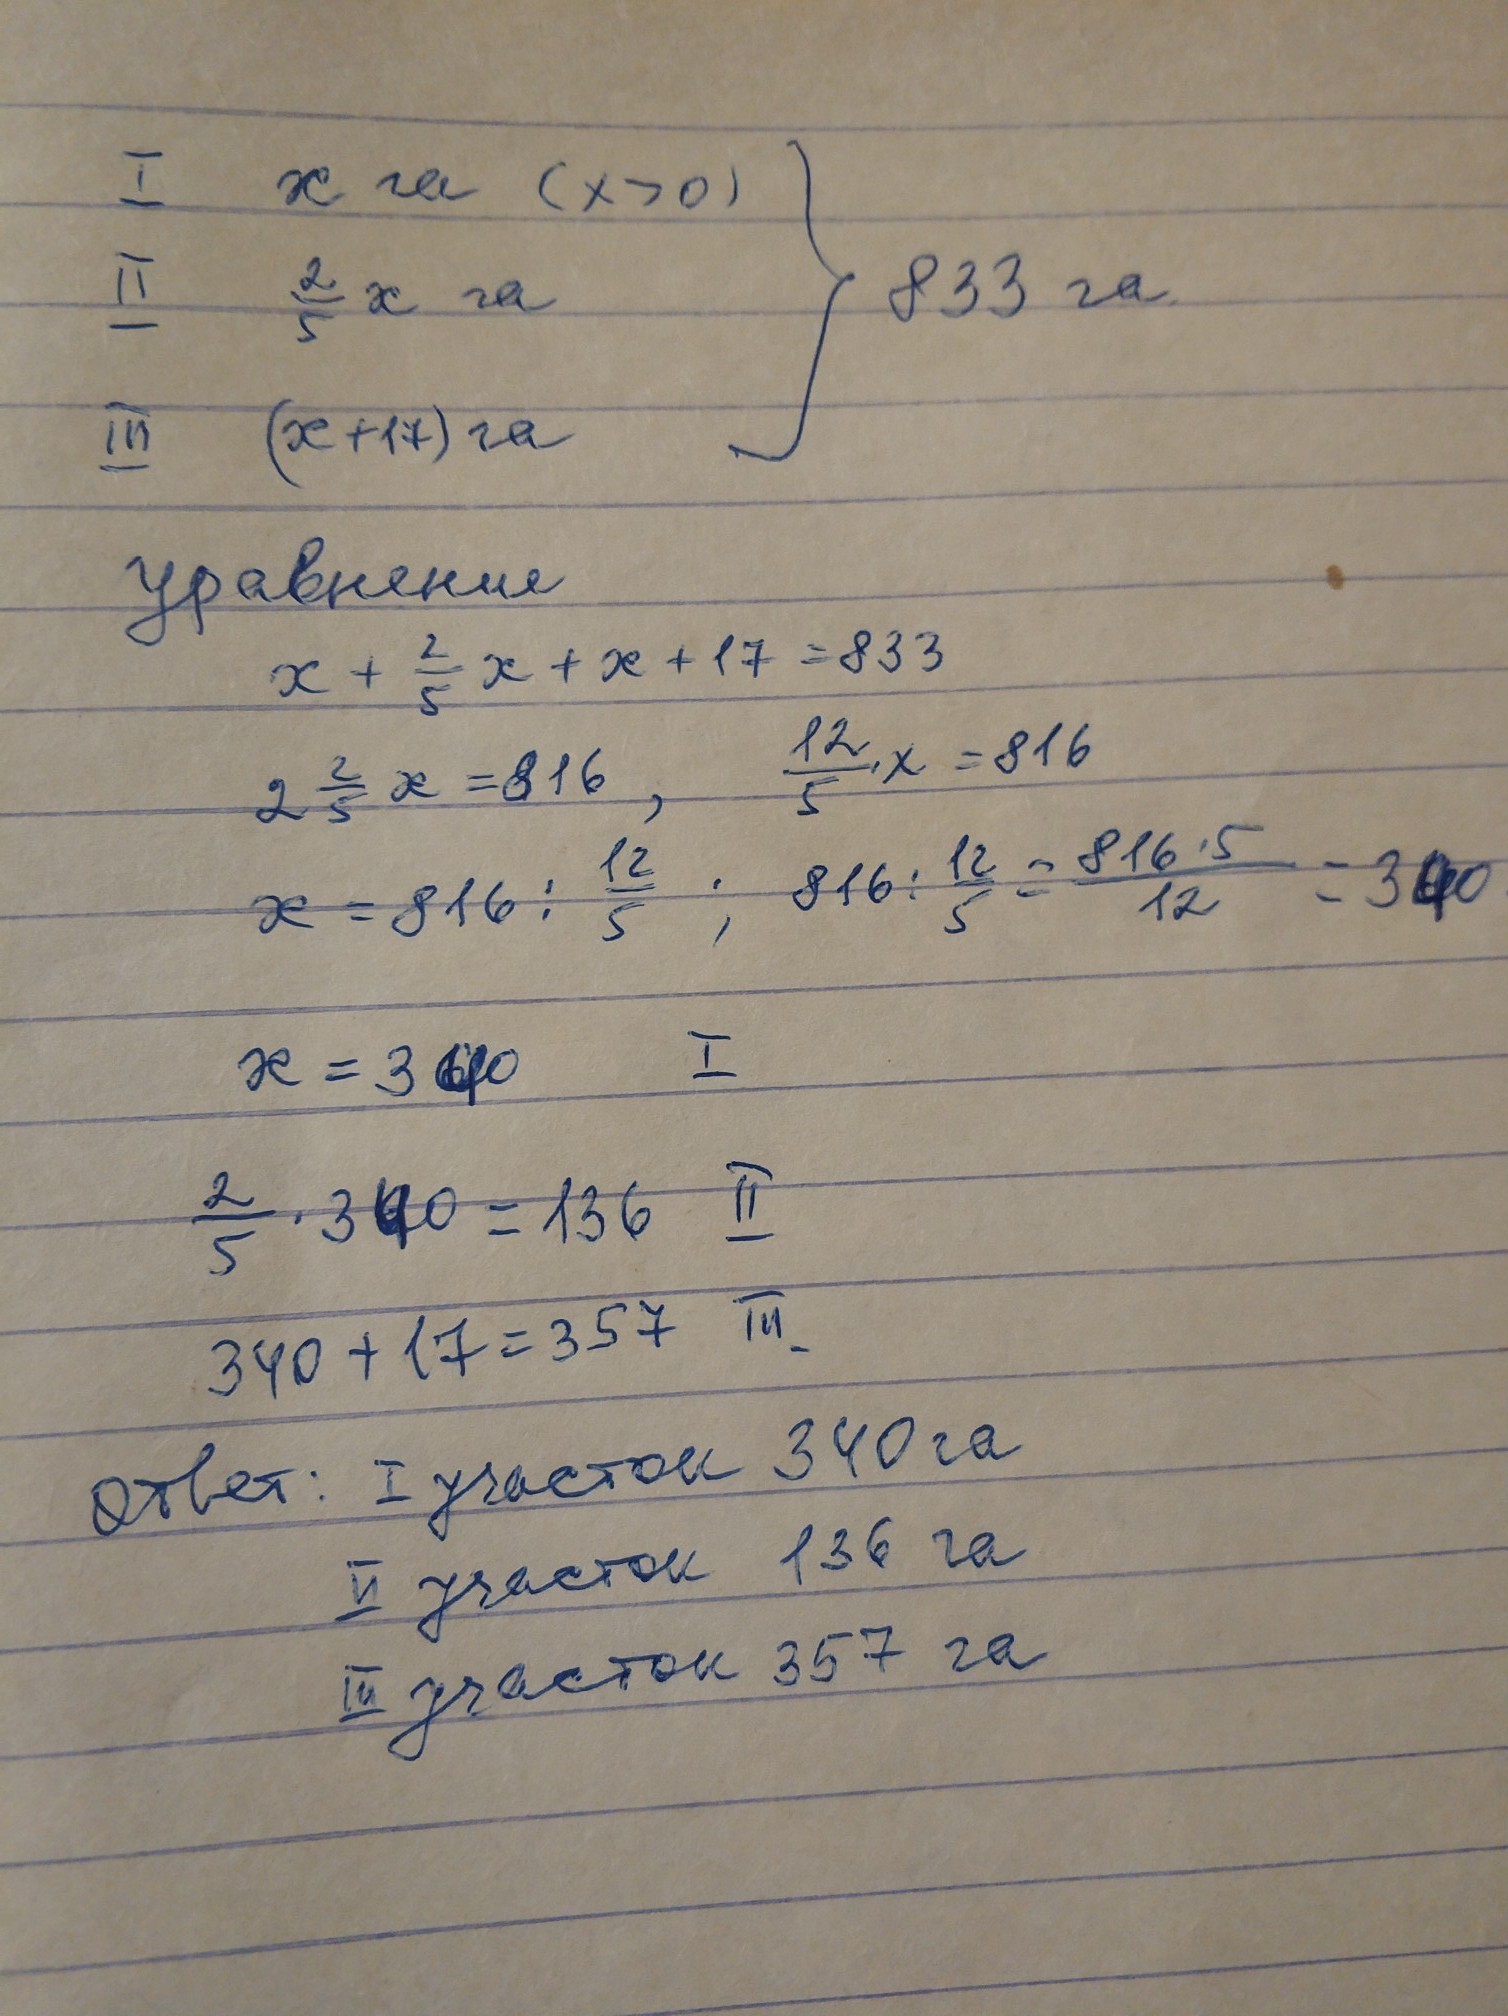 I x га (x>0)
II 2/5 x га } 833 га
III (x+17) га
Уравнение
x + 2/5 x + x + 17 = 833
2 2/5 x = 816, 12/5 · x = 816
x = 816 : 12/5 ; 816 : 12/5 = 816·5/12 = 340
x = 340 I
2/5 · 340 = 136 II
340 + 17 = 357 III
Ответ: I участок 340 га
II участок 136 га
III участок 357 га